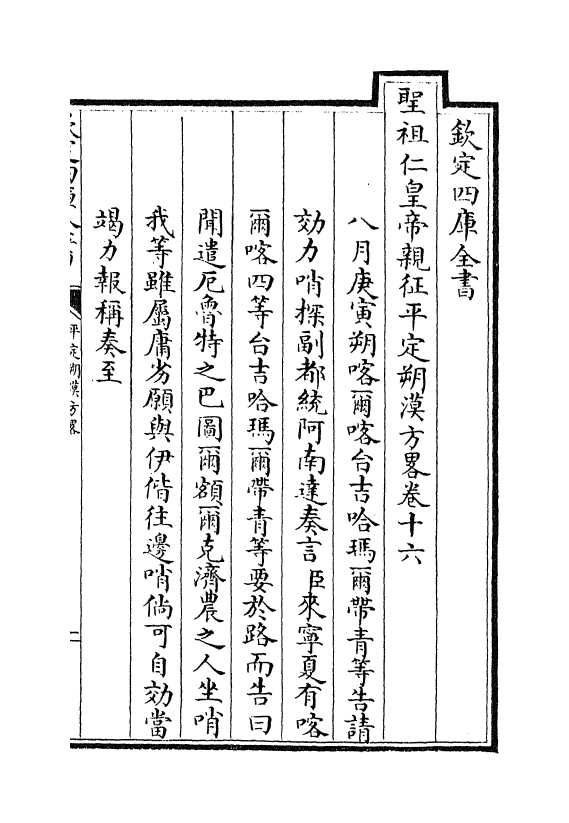 欽定四庫全書
聖祖仁皇帝親征平定朔漠方畧卷十六
八月庚寅朔喀爾喀台吉哈瑪爾帶青等告請
効力哨探副都統阿南達奏言臣來寧夏有喀
爾喀四等台吉哈瑪爾帶青等要於路而告曰
聞遣厄魯特之巴圖爾額爾克濟農之人坐哨
我等雖屬庸劣願與伊偕往邊哨倘可自効當
竭力報稱奏至
平定朔漠方畧